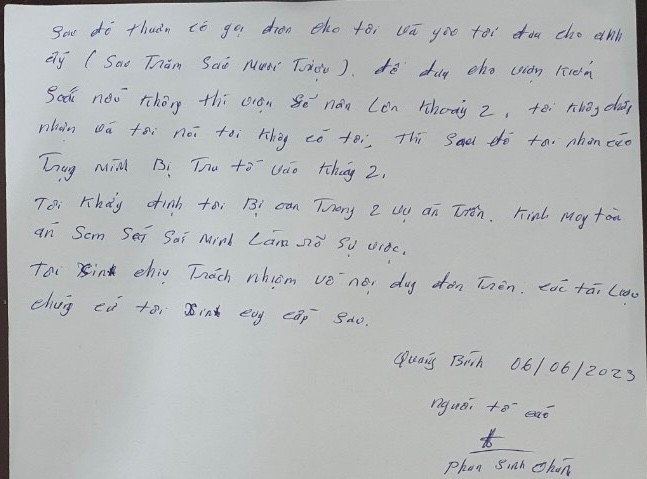 Sao đó thuấn có gọi đươn cho tôi và yêo tôi đưa cho anh
ấý ( Sao Trăm Sáo Mươi Triệu ). để đưa cho viện Kiểm
Soái nếo không thì viện Sẽ nân Lên Khoảy 2, tôi không chấp
nhận và tôi nói tôi không có tội, Thì Sao đó tôi nhận cáo
Trạng mình Bị Truy tố vào Khoảng 2,
Tôi Khẳng định tôi Bị oan Trong 2 vụ án Trên. Kính Moy tòa
án Sem Sét Soi Minh Làm rõ Sự việc.
Tôi xinh chịu Trách nhiệm về nội dug đơn Trên. các tài Liệu
chứg cứ tôi xinh cug cấp Sao.
Quảng Bình 06/06/2023
người tố cáo
Phan Sinh